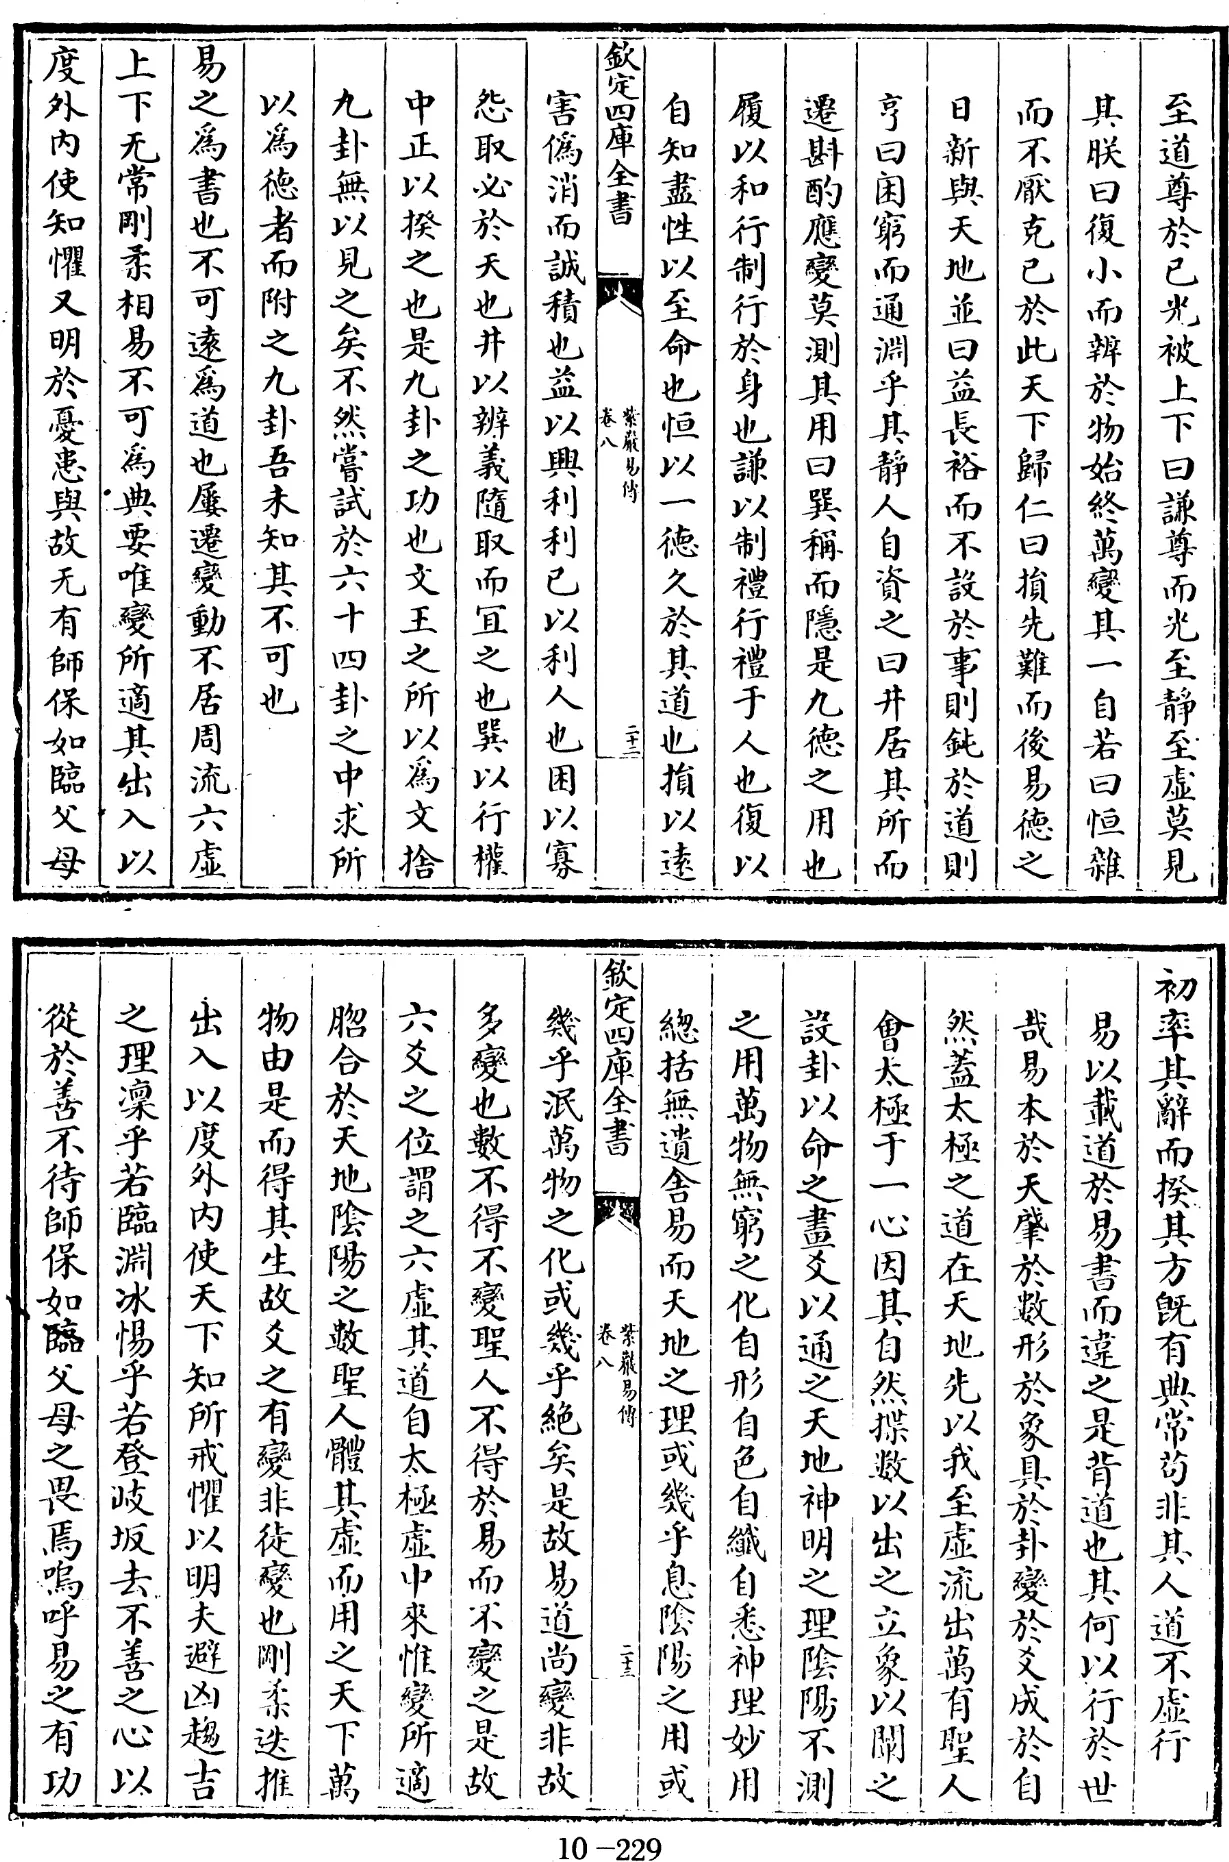 至道尊於已光被上下曰謙尊而光至靜至虛莫見
其朕曰復小而辨於物始終萬變其一自若曰恒雜
而不厭克已於此天下歸仁曰損先難而後易德之
日新與天地並曰益長裕而不設於事則鈍於道則
亨曰困窮而通淵乎其靜人自資之曰井居其所而
遷斟酌應變莫測其用曰巽稱而隱是九德之用也
履以和行制行於身也謙以制禮行禮于人也復以
自知盡性以至命也恒以一德久於其道也損以遠
欽定四庫全書
紫巖易傳
卷八
二十二
害僞消而誠積也益以興利利已以利人也困以寡
怨取必於天也井以辨義隨取而宜之也巽以行權
中正以揆之也是九卦之功也文王之所以爲文捨
九卦無以見之矣不然嘗試於六十四卦之中求所
以爲德者而附之九卦吾未知其不可也
易之爲書也不可遠爲道也屢遷變動不居周流六虛
上下无常剛柔相易不可爲典要唯變所適其出入以
度外内使知懼又明於憂患與故无有師保如臨父母
初率其辭而揆其方旣有典常苟非其人道不虛行
易以載道於易書而違之是背道也其何以行於世
哉易本於天肇於數形於象具於卦變於爻成於自
然蓋太極之道在天地先以我至虛流出萬有聖人
會太極于一心因其自然揲數以出之立象以關之
設卦以命之畫爻以通之天地神明之理陰陽不測
之用萬物無窮之化自形自色自纖自悉神理妙用
總括無遺舍易而天地之理或幾乎息陰陽之用或
欽定四庫全書
紫巖易傳
卷八
二十三
幾乎泯萬物之化或幾乎絶矣是故易道尚變非故
多變也數不得不變聖人不得於易而不變之是故
六爻之位謂之六虛其道自太極虛中來惟變所適
脗合於天地陰陽之數聖人體其虛而用之天下萬
物由是而得其生故爻之有變非徒變也剛柔迭推
出入以度外内使天下知所戒懼以明夫避凶趨吉
之理凜乎若臨淵冰惕乎若登岐坂去不善之心以
從於善不待師保如臨父母之畏焉嗚呼易之有功
10-229